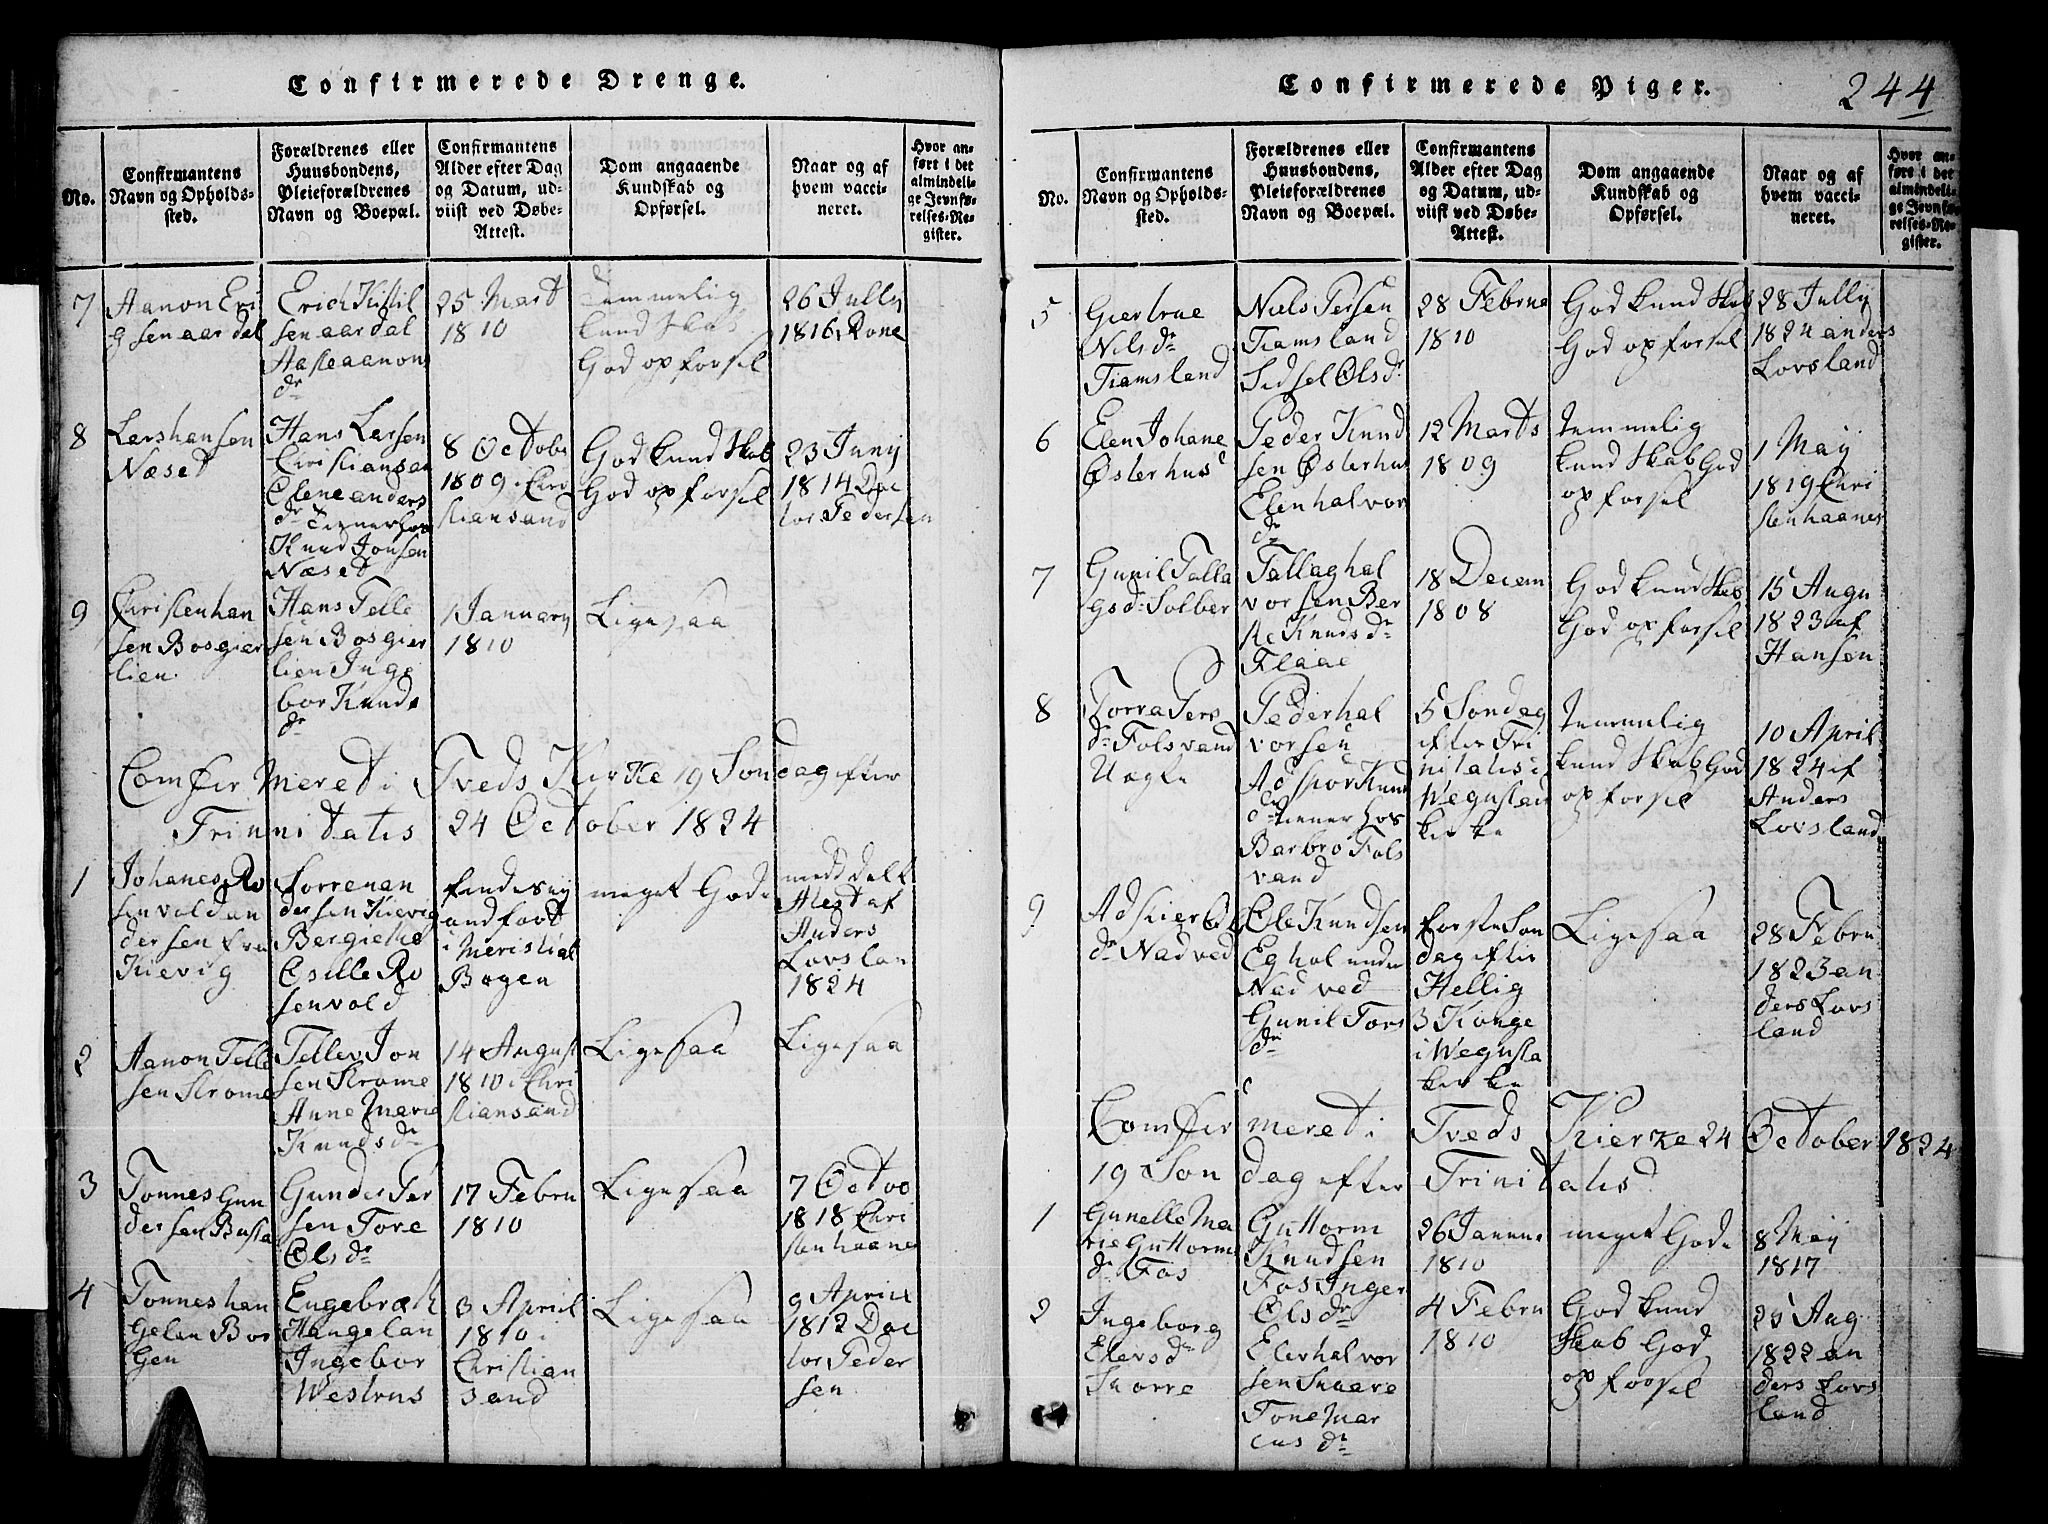 Confirmerede Drenge.
No.
Confirmantens
Navn og Opholds-
sted.
Forældrenes eller
Huusbondens,
Pleieforældrenes
Navn og Boepæl.
Confirmantens
Alder efter Dag
og Datum, ud-
viist ved Døbe-
Attest.
Dom angaaende
Kundskab og
Opførsel.
Naar og af
hvem vacci-
neret.
Hvor an-
ført i det
almindeli-
ge Jevnfø-
relses-Re-
gister.
7
Aanon Eri
gsen aardal
Erich Kittil
sen aardal
Aaste aanons
dr
25 Mart
1810
Temmelig
kundskab
God opførsel
26 Jully
1816 Rone
8
Lars hansen
Næset
Hans Larsen
Christiansan
Elene anders
dr Tienner hos
Knud Jonsen
Næset
8 Octobr
1809 i Chri
stiansand
God kundskab
God opførsel
23 Juny
1814 Doc
tor Pedersen
9
Christen han
sen Bosgier
lien
Hans Telle
sen Bosgier
lien Inge
bor Knuds
dr
1 January
1810
Ligesaa
Comfermeret i Tveds Kirke 19 Søndag efter
Trinnitatis 24 October 1824
1
Johanes Ro
senvold an
dersen fra
Kievig
Sorrenan
dersen Kievig
Bergiethe
Cselle Ro
senvold
fandes ey
andført
i Meristial
Bogen
meget Gode
medd delt
Atest af
Anders
Lovslan
1824
2
Aanon Telle
sen Strøme
Tellev Jon
sen Strøme
Anne Marie
Knudsdr
14 August
1810 i Chri
stiansand
Ligesaa
Ligesaa
3
Tønnes Gun
dersen Busta
Gunder Per
sen Tore
Olsdr
17 Febru
1810
Ligesaa
7 Octbo
1818 Chri
sten haanes
4
Tønnes han
gelan Bor
gen
Engebræth
Hangelan
Ingebor
Westrus
3 April
1810 i
Christian
sand
Ligesaa
9 April
1812 Doc
tor Peder
sen
Confirmerede Piger.
244
No.
Confirmantens
Navn og Opholds-
sted.
Forældrenes eller
Huusbondens,
Pleieforældrenes
Navn og Boepæl.
Confirmantens
Alder efter Dag
og Datum, ud-
viist ved Døbe-
Attest.
Dom angaaende
Kundskab og
Opførsel.
Naar og af
hvem vacci-
neret.
Hvor an-
ført i det
almindeli-
ge Jevnfø-
relses-Re-
gister.
5
Giertrue
Nilsdr
Tiamsland
Niels Persen
Tiamsland
Sidsel Olsdr
28 Februa
1810
God kundskab
God opførsel
28 Jully
1824 anders
Lovsland
6
Elen Johane
Østerhus
Peder Knud
sen Østerhus
Elen halvor
dr
12 Marts
1809
temmelig
kundskab God
opførsel
1 May
1819 Chri
sten haanes
7
Gunil Talla
gsdr Solber
Tallag hal
vorsen Ber
te Knudsdr
Flaae
18 Decem
1808
God kundskab
God opførsel
15 Augu
1823 af
Hansen
8
Torra Pers
dr Folsvand
Uægte
Peder hal
vorsen
Adspor Knud
dr tiener hos
Barbro Fols
vand
5 Søndag
efter Tri
nitatis i
Wegusta
kirke
temmelig
kundskab God
opførsel
10 April
1824 af
Anders
Lovsland
9
Adstier Ols
dr Nadved
Ole Knudsen
Eghol under
Nadved
Gunil Tors
dr
første Søn
dag efter
Hellig
3 Konge
i Wegusta
kirke
Ligesaa
28 Febru
1823 an
ders Lovs
land
Comfermeret i Tveds Kierke 24 October 1824
19 Søndag efter Trinitatis
1
Gunelle Ma
rie Guttorms
dr Fos
Guttorm
Knudsen
Fos Inger
Olsdr
26 Januar
1810
meget Gode
8 May
1817
2
Ingeborg
Elevsdr
Snørre
Elevhalvor
sen Snaare
Tone Mar
cusdr
4 Febru
1810
God kund
skab God
opførsel
25 Aug
1822 an
ders Lovs
land